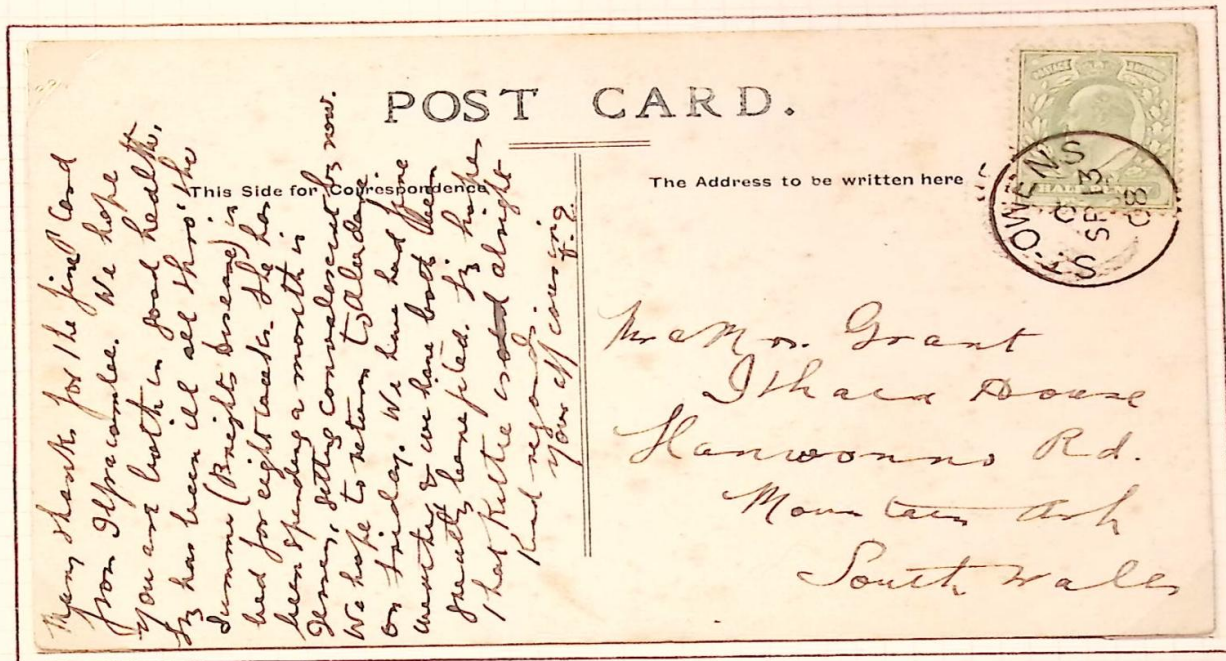 POST CARD.
This Side for Correspondence
The Address to be written here
HALF PENNY
ST. OWENS
SP 13
08
Many thanks for the fine Card
from Ilfracombe. We hope
you are both in good health,
Liz has been ill all thro' the
Summer (Brights Disease) in
bed for eight weeks. She has
been spending a month in
Jersey, getting convalescent by now.
We hope to return to
on Friday. We have had fine
weather & we have both been
greatly benefited. Liz hopes
that Kettie is alright
Kind regards.
your aff cousin
Mr & Mrs. Grant
Ithaca House
Llanwonno Rd.
Mountain Ash
South Wales